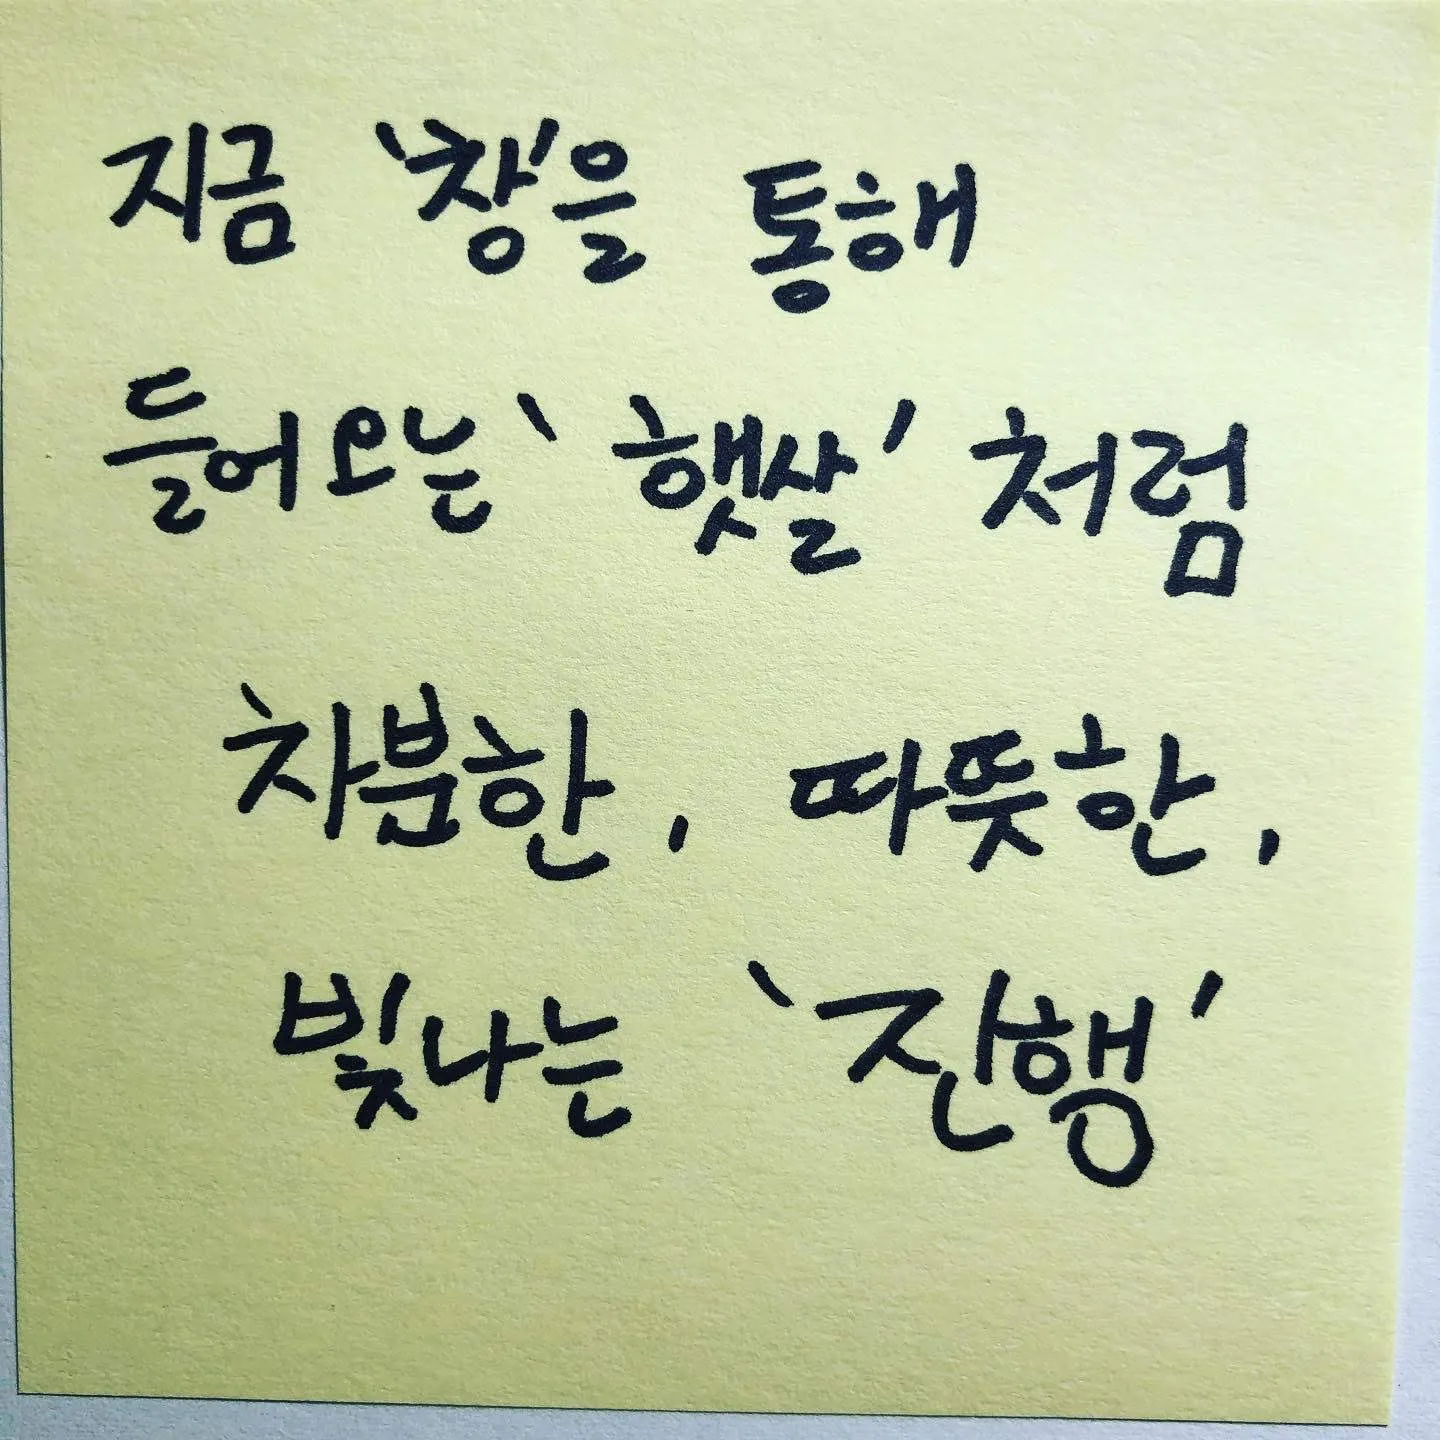 지금 '창'을 통해
들어오는 '햇살'처럼
차분한, 따뜻한,
빛나는 '진행'